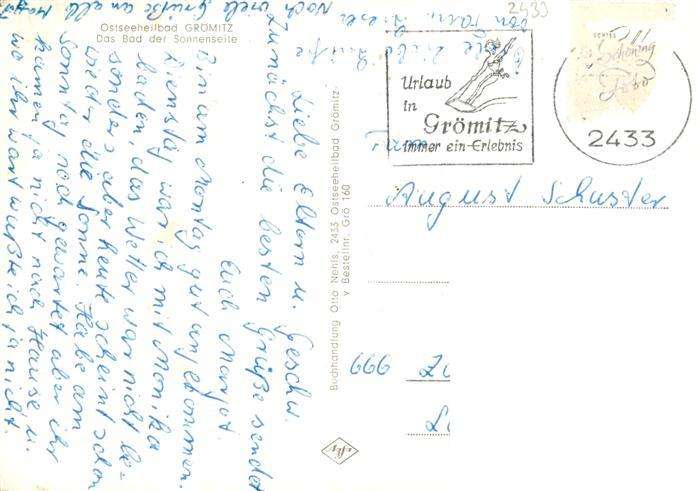 Ostseeheilbad GRÖMITZ
Das Bad der Sonnenseite
Liebe Eltern u. Geschw.
Zunächst die besten Grüße sendet
Euch Margot.
Bin am Montag gut angekommen.
Dienstag war ich mit Monika
baden, das Wetter war nicht be-
sonders aber heute scheint schon
wieder die Sonne. Habe am
Sonntag noch gewartet aber ihr
kamen ja nicht nach Hause u.
wo ihr wart wußte ich ja nicht.
Noch viele Grüße an all
Buchhandlung Otto Nehls, 2433 Ostseeheilbad Grömitz
v Bestellnr. Grö 160
2433
Urlaub
in
Grömitz
immer ein Erlebnis
2433
Fam.
August Schuster
666